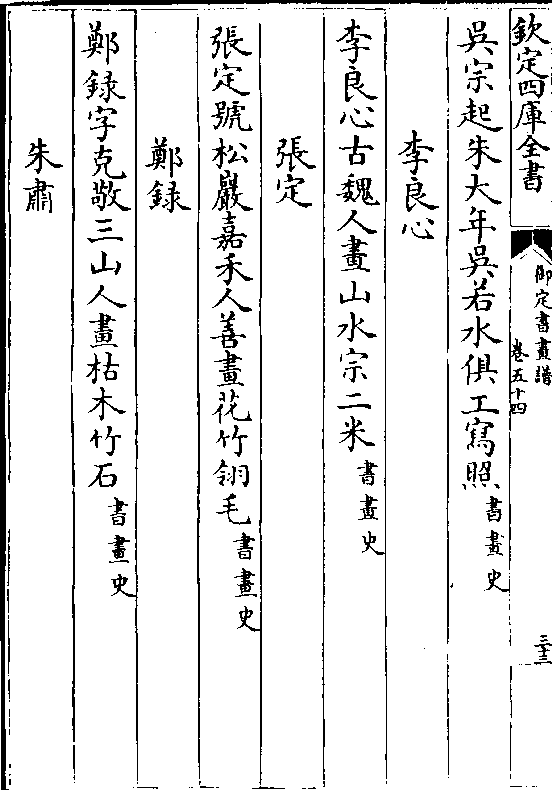 欽定四庫全書
御定書畫譜
卷五十四
三十三
吳宗起朱大年吳若水俱工寫照書畫史
李良心
李良心古魏人畫山水宗二米書畫史
張定
張定號松巖嘉禾人善畫花竹翎毛書畫史
鄭録
鄭録字克敬三山人畫枯木竹石書畫史
朱肅